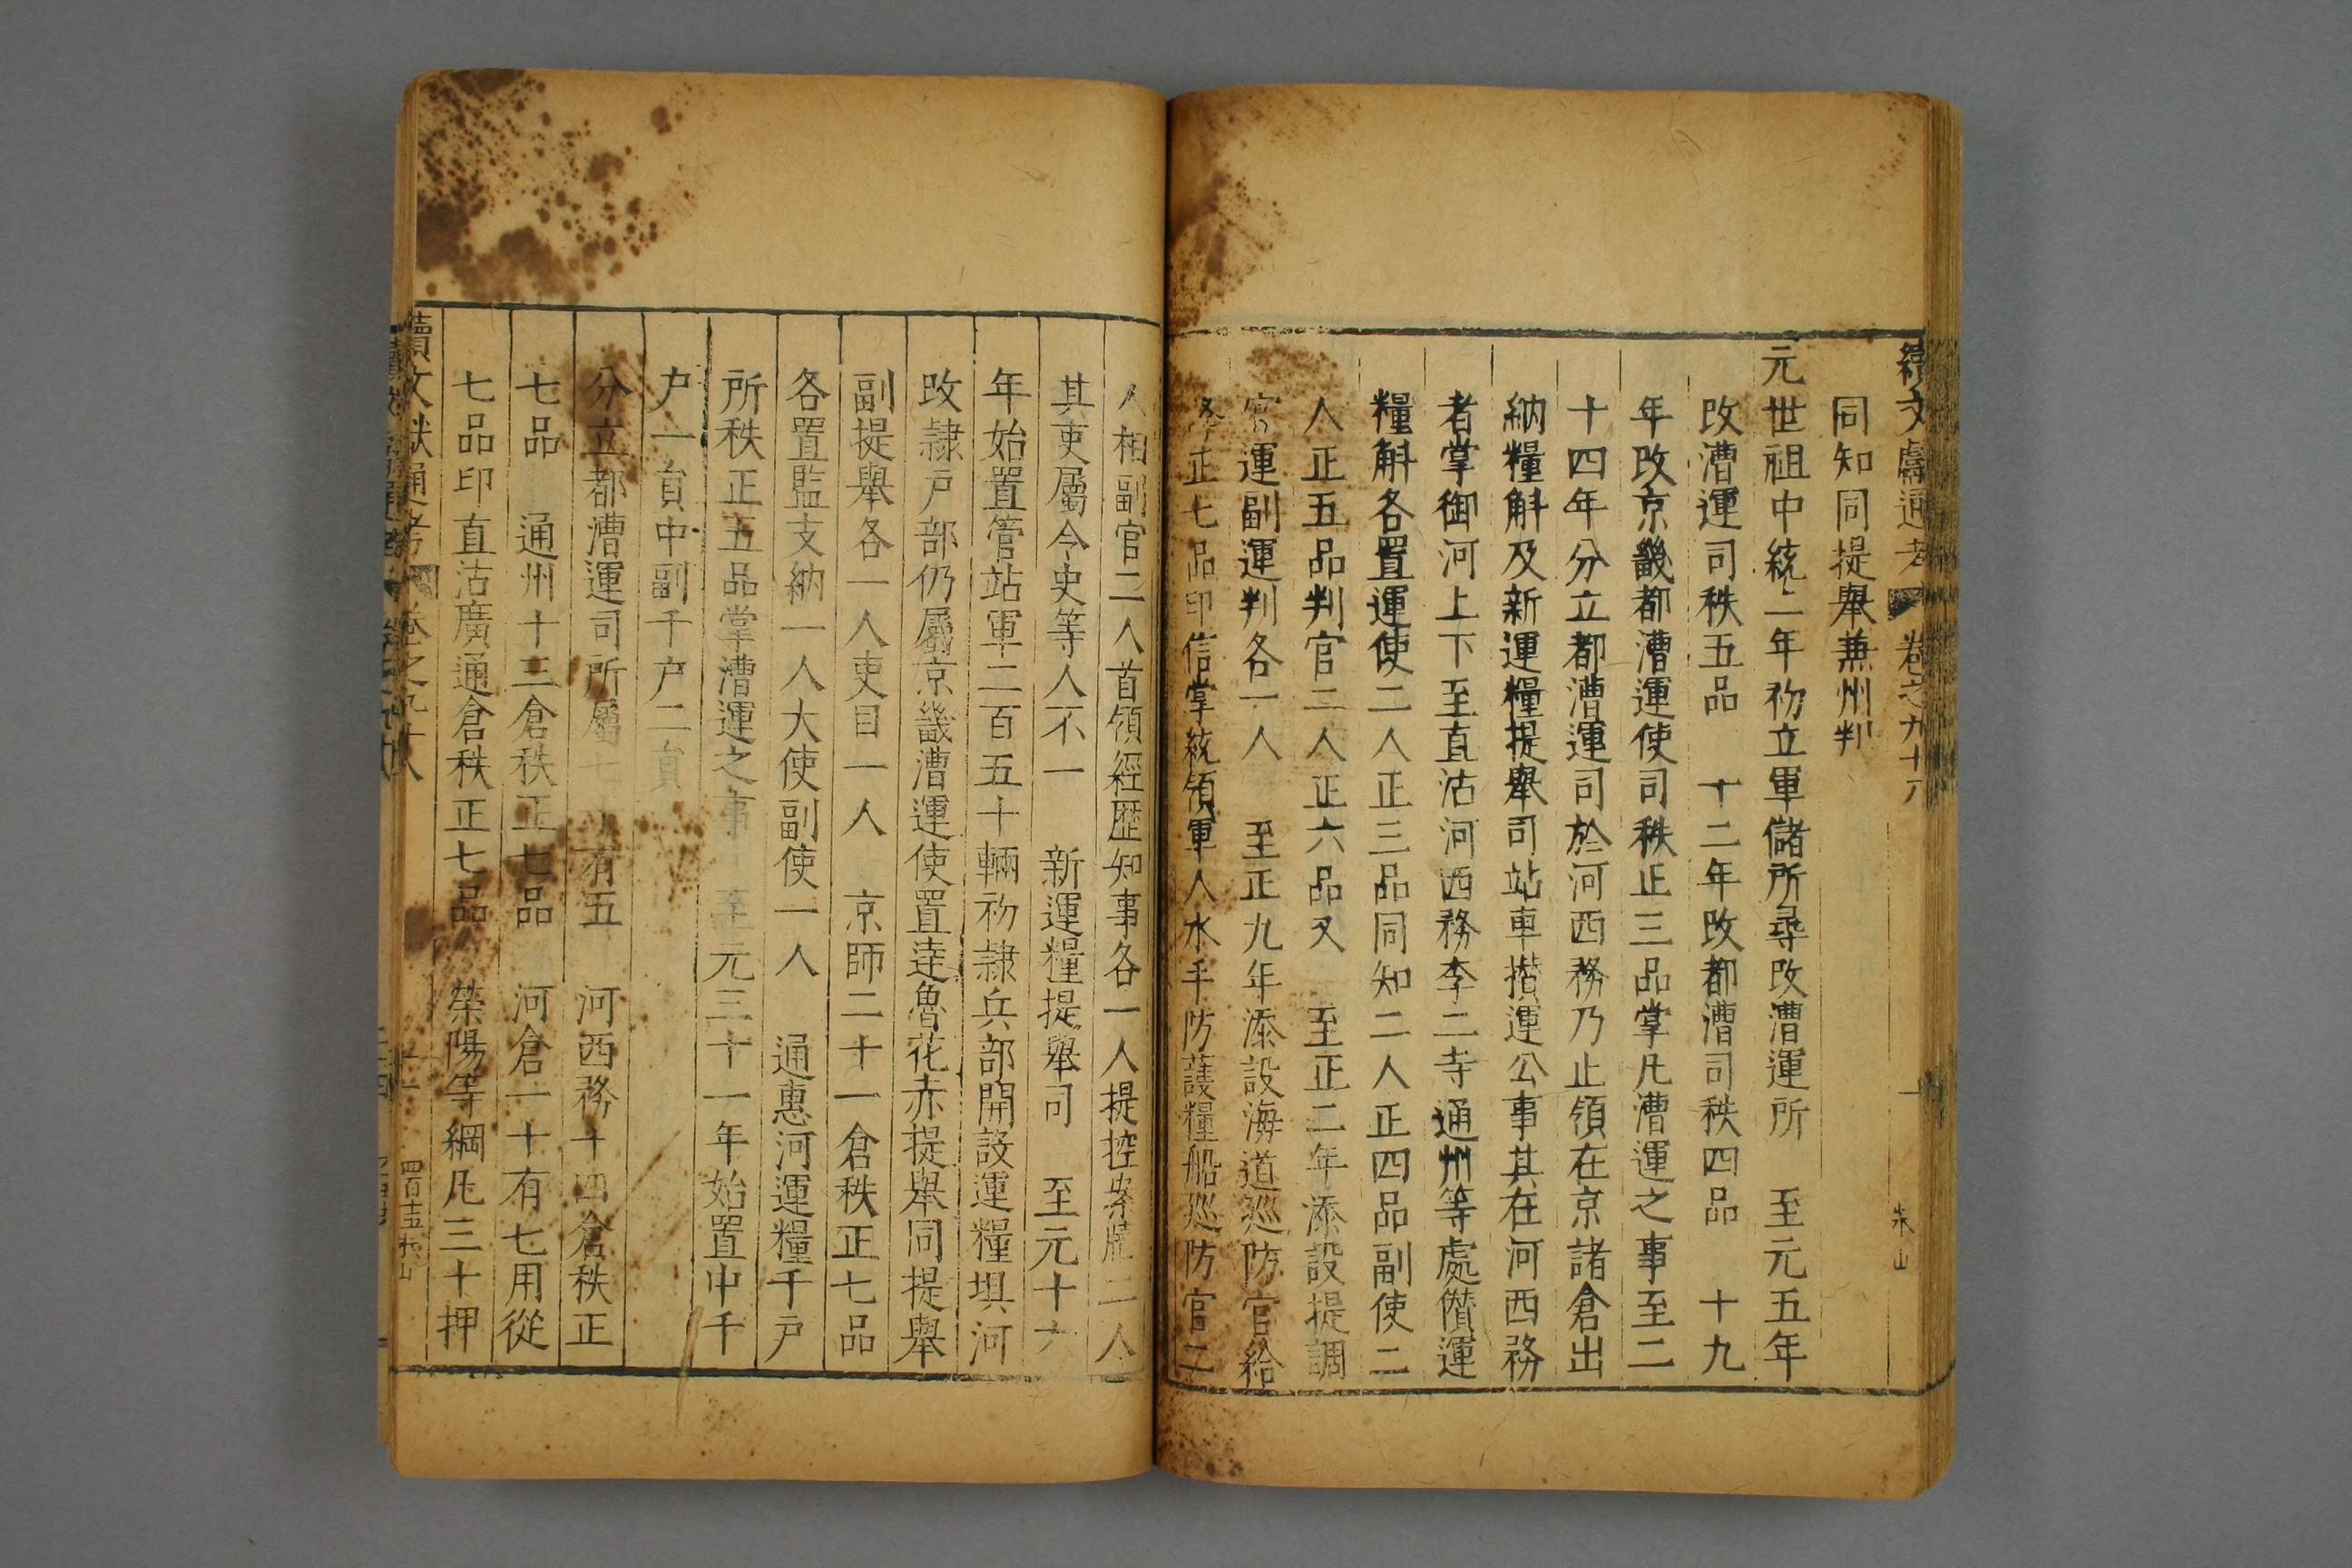 續文獻通考 卷之九十八 一 朱山
同知同提舉兼州判
元世祖中統二年初立軍儲所尋改漕運所 至元五年
改漕運司秩五品 十二年改都漕司秩四品 十九
年改京畿都漕運使司秩正三品掌凡漕運之事至二
十四年分立都漕運司於河西務乃止領在京諸倉出
納糧斛及新運糧提舉司站車攢運公事其在河西務
者掌御河上下至直沽河西務李二寺通州等處儹運
糧斛各置運使二人正三品同知二人正四品副使二
人正五品判官二人正六品又 至正二年添設提調
官運副運判各一人 至正九年添設海道巡防官給
降正七品印信掌統領軍人水手防護糧船巡防官二
人相副官二人首領經歷知事各一人提控案牘二人
其吏屬令史等人不一 新運糧提舉司 至元十六
年始置管站軍二百五十輛初隸兵部開設運糧垻河
改隸戸部仍屬京畿漕運使置達魯花赤提舉同提舉
副提舉各一人吏目一人 京師二十一倉秩正七品
各置監支納一人大使副使一人 通惠河運糧千戸
所秩正五品掌漕運之事 至元三十一年始置中千
户一員中副千户二員
分立都漕運司所屬七十有五 河西務十四倉秩正
七品 通州十三倉秩正七品 河倉一十有七用從
七品印直沽廣通倉秩正七品 榮陽等綱凡三十押
續文獻通考 卷之九十八